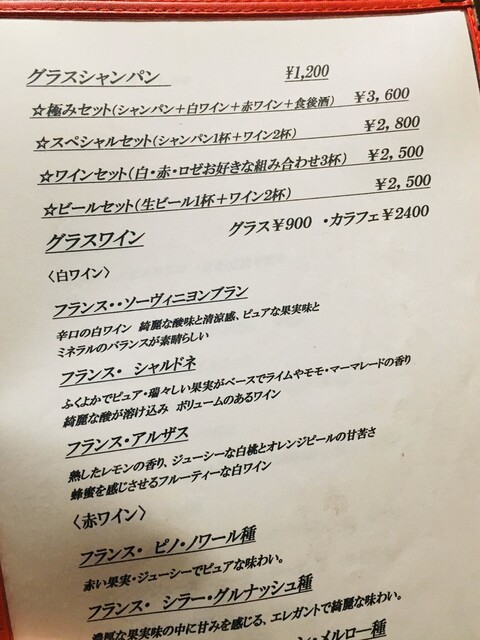 グラスシャンパン ¥1,200
☆極みセット(シャンパン＋白ワイン＋赤ワイン＋食後酒) ￥3,600
☆スペシャルセット(シャンパン1杯＋ワイン2杯) ￥2,800
☆ワインセット(白・赤・ロゼお好きな組み合わせ3杯) ￥2,500
☆ビールセット(生ビール1杯＋ワイン2杯) ￥2,500
グラスワイン グラス￥900 ・カラフェ￥2400
〈白ワイン〉
フランス・・ソーヴィニヨンブラン
辛口の白ワイン 綺麗な酸味と清涼感、ピュアな果実味と
ミネラルのバランスが素晴らしい
フランス・ シャルドネ
ふくよかでピュア・瑞々しい果実がベースでライムやモモ・マーマレードの香り
綺麗な酸が溶け込み ボリュームのあるワイン
フランス・アルザス
熟したレモンの香り、ジューシーな白桃とオレンジピールの甘苦さ
蜂蜜を感じさせるフルーティーな白ワイン
〈赤ワイン〉
フランス・ ピノ・ノワール種
赤い果実・ジューシーでピュアな味わい。
フランス・ シラー・グルナッシュ種
濃厚な果実味の中に甘みを感じる、エレガントで綺麗な味わい。
ン・メルロー種